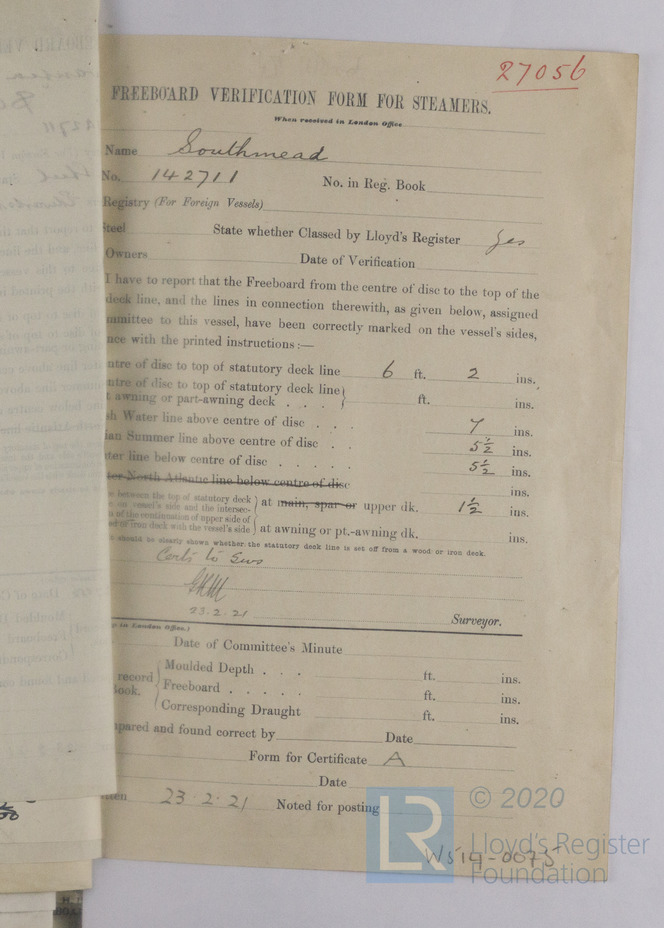 27056
FREEBOARD VERIFICATION FORM FOR STEAMERS.
When received in London Office
Name Southmead
No. 142711 No. in Reg. Book
Registry (For Foreign Vessels)
Steel State whether Classed by Lloyd's Register yes
Owners Date of Verification
I have to report that the Freeboard from the centre of disc to the top of the
deck line, and the lines in connection therewith, as given below, assigned
mmittee to this vessel, have been correctly marked on the vessel's sides,
nce with the printed instructions:—
ntre of disc to top of statutory deck line 6 ft. 2 ins.
ntre of disc to top of statutory deck line
t awning or part-awning deck . . . ft. ins.
sh Water line above centre of disc . . . 7 ins.
ian Summer line above centre of disc . . 5½ ins.
ter line below centre of disc . . . . . 5½ ins.
ter North Atlantic line below centre of disc ins.
e between the top of statutory deck
e on vessel's side and the intersec-
n of the continuation of upper side of
ed or iron deck with the vessel's side
at main, spar or upper dk. 1½ ins.
at awning or pt.-awning dk. ins.
should be clearly shown whether the statutory deck line is set off from a wood or iron deck.
Certs to
23.2.21
Surveyor.
in London Office.)
Date of Committee's Minute
record Book.
Moulded Depth . . . ft. ins.
Freeboard . . . . . ft. ins.
Corresponding Draught ft. ins.
pared and found correct by Date
Form for Certificate A
Date
tten 23.2.21 Noted for posting
LR
© 2020
Lloyd's Register
Foundation
W519-0075